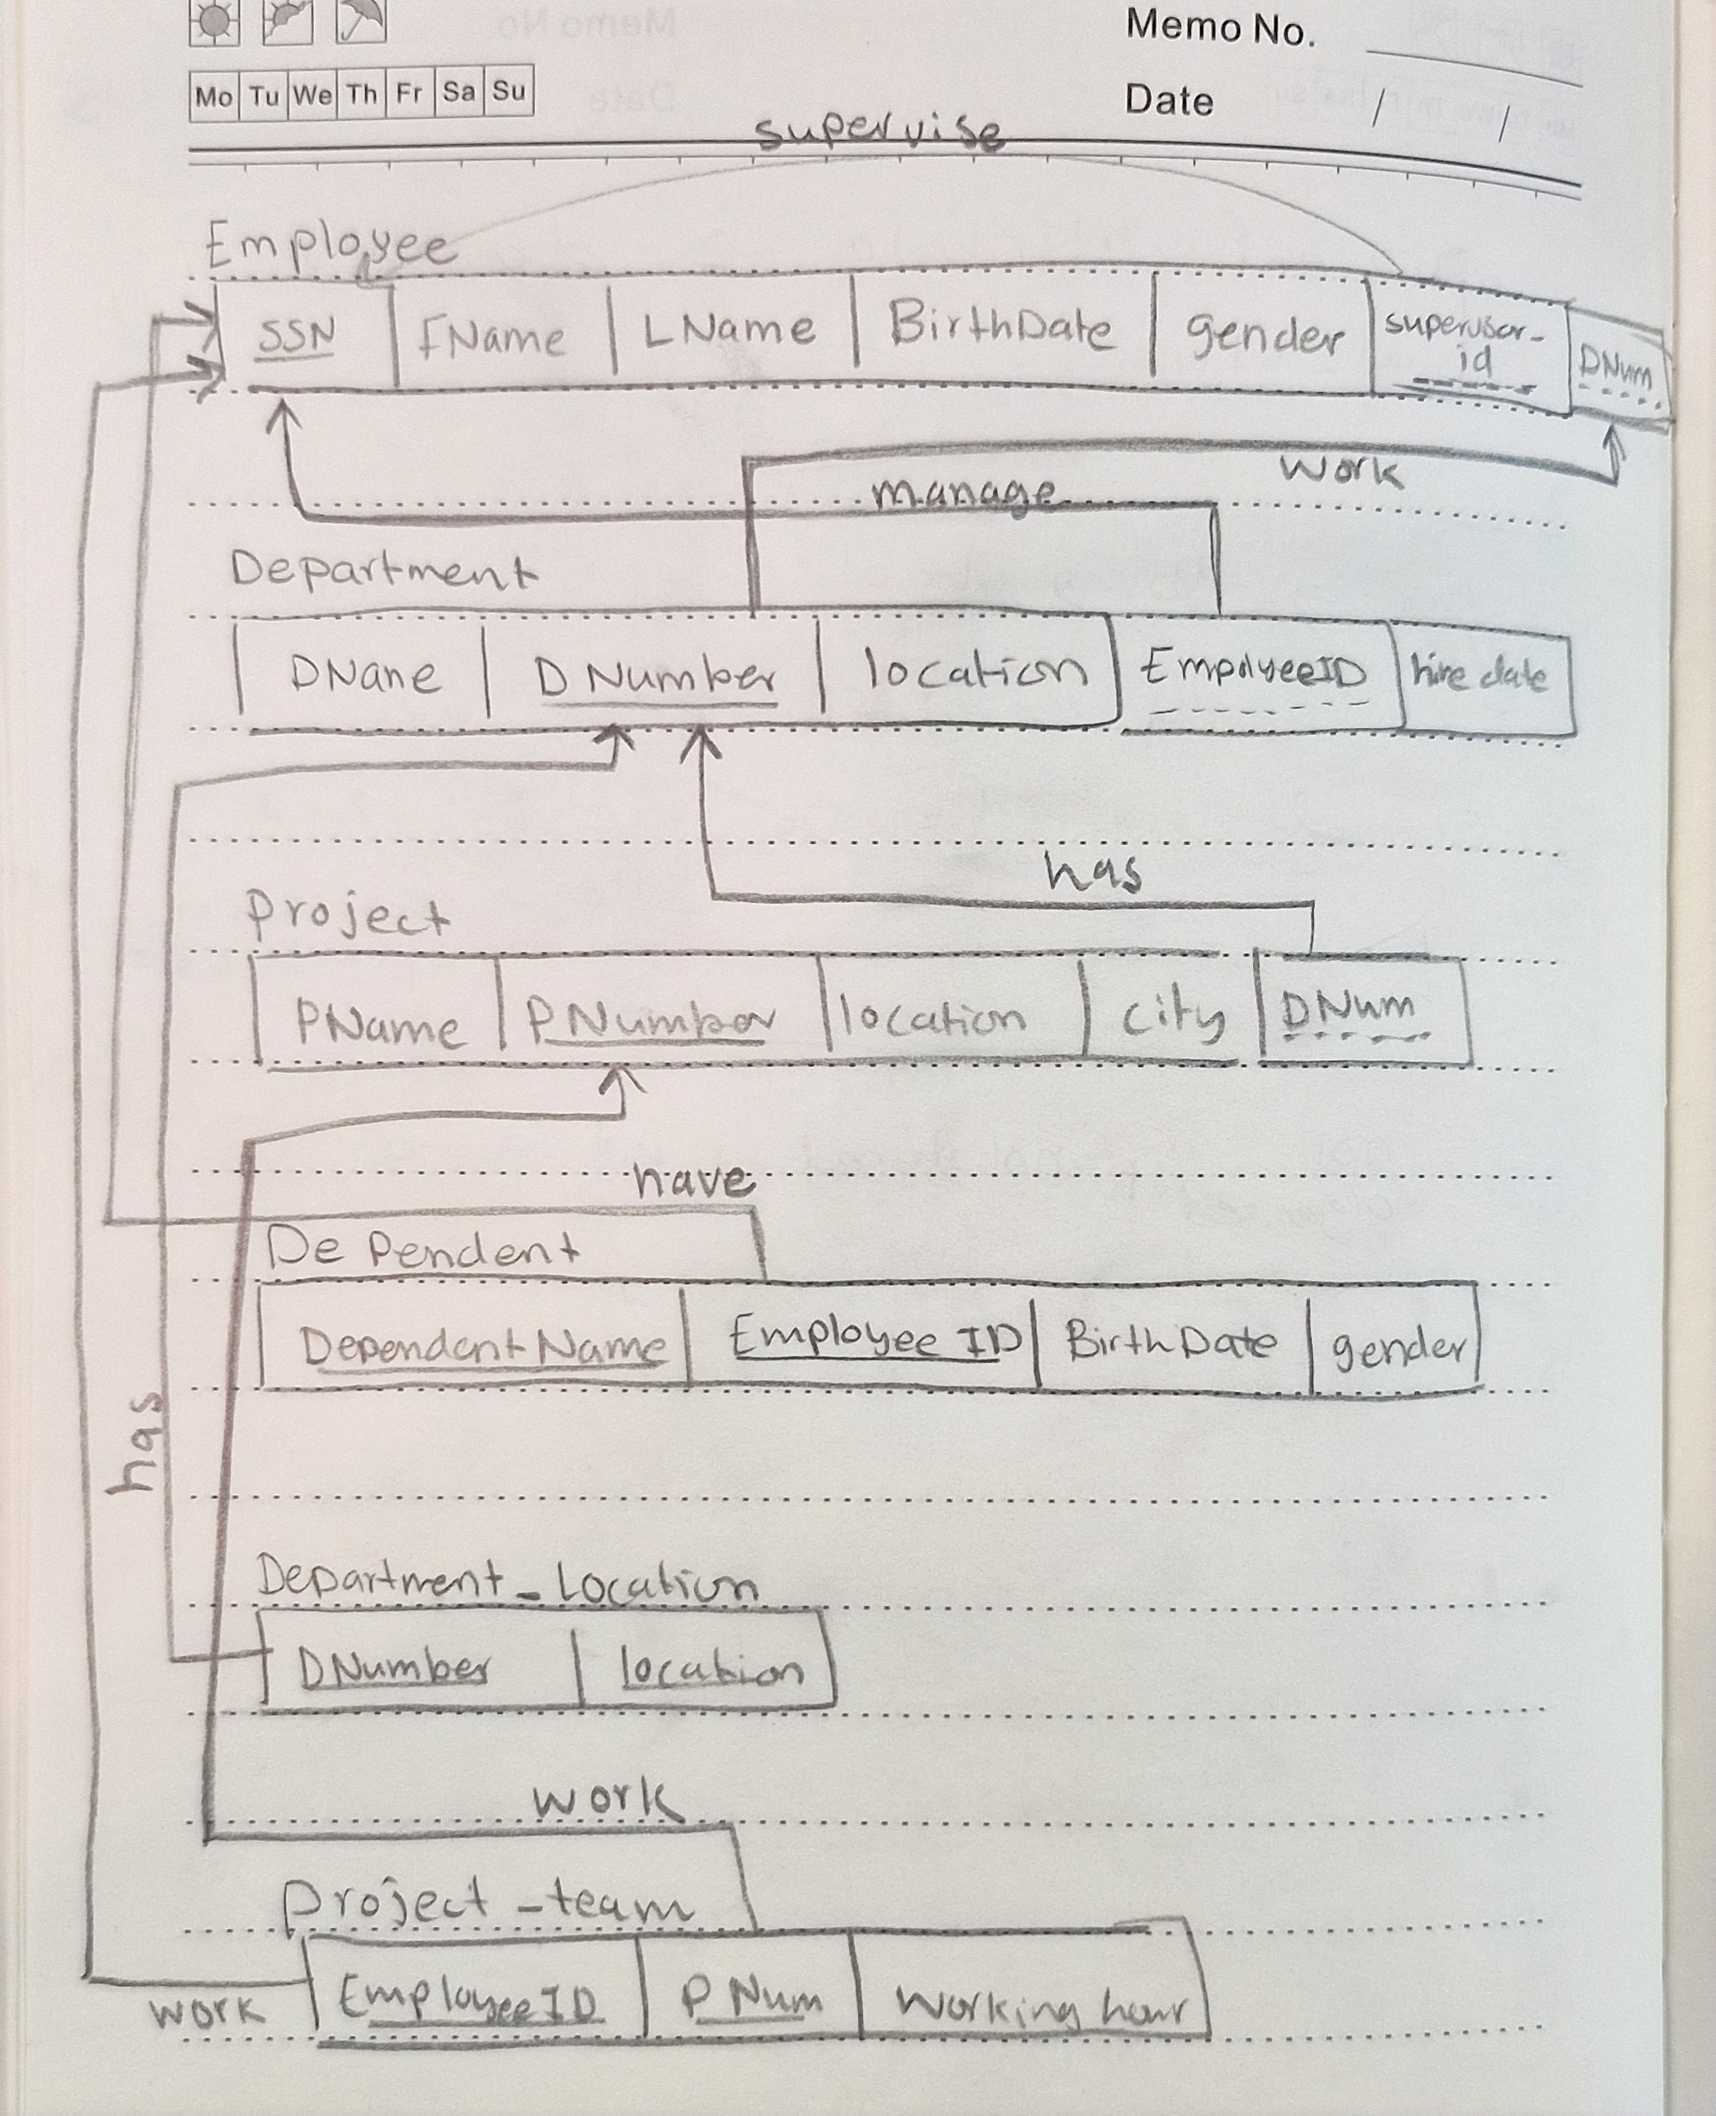 Memo No.
Mo Tu We Th Fr Sa Su
Date / /
supervise
Employee
SSN FName LName BirthDate gender supervisor_id DNum
work
manage
Department
DName DNumber location EmployeeID hire date
has
Project
PName PNumber location city DNum
have
Dependent
DependentName Employee ID BirthDate gender
has
Department_Location
DNumber location
work
Project_team
EmployeeID PNum Working hour
work